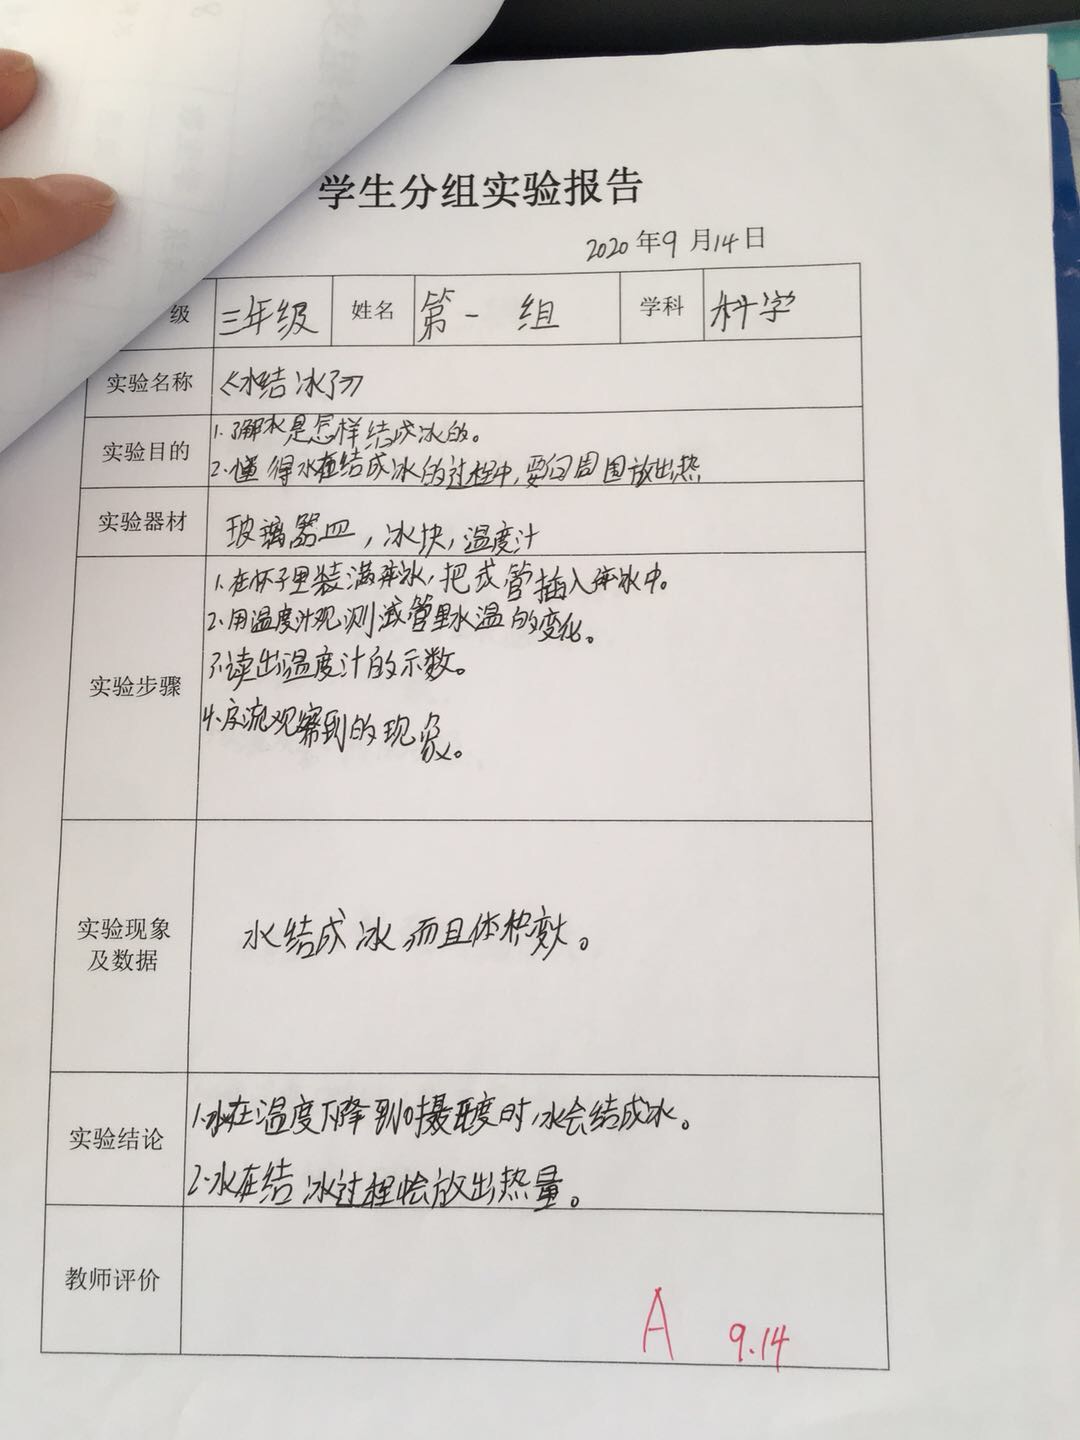 学生分组实验报告
2020年9月14日
级 三年级 姓名 第一组 学科 科学
实验名称 《水结冰了》
实验目的 1.了解水是怎样结成冰的。
2.懂得水在结成冰的过程中,要向周围放出热
实验器材 玻璃器皿,冰块,温度计
1.在杯子里装满碎冰,把试管插入碎冰中。
2.用温度计观测试管里水温的变化。
实验步骤 3.读出温度计的示数。
4.交流观察到的现象。
实验现象
及数据 水结成冰而且体积变大。
实验结论 1.水在温度下降到0摄氏度时,水会结成冰。
2.水在结冰过程中会放出热量。
教师评价
A 9.14